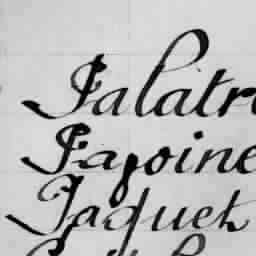 Jalatr
Jajoine
Jaquet